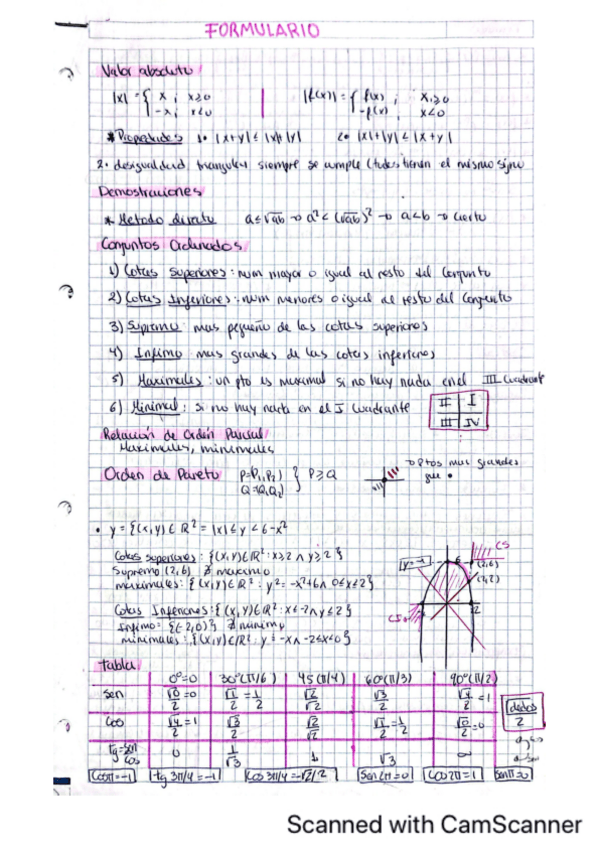 FORMULARIO
Valor absoluto
|x| = { x ; x≥0    |f(x)| = { f(x) ; x≥0
-x ; x<0    -f(x) ; x<0
* Propiedades 1• |x+y| ≤ |x|+|y|    2• |x|+|y| ≤ |x+y|
2. desigualdad triangular siempre se cumple (todos tienen el mismo signo
Demostraciones
* Metodo directo a≤√ab → a² < (√ab)² → a<b → cierto
Conjuntos Ordenados
1) Cotas Superiores: num mayor o igual al resto del conjunto
2) Cotas Inferiores: num menores o igual al resto del conjunto
3) Supremo: mas pequeño de las cotas superiores
4) Infimo: mas grandes de las cotas inferiores
5) Maximales: un pto es maximal si no hay nada en el III Cuadrante
6) Minimal: si no hay nada en el I Cuadrante
II I
III IV
Relación de Orden Parcial
Maximales, minimales
Orden de Pareto P=(P₁,P₂) } P≥Q
Q=(Q₁,Q₂)
→ ptos mas grandes
que •
• y = {(x,y)∈ℝ² = |x|≤y<6-x²
Cotas superiores: {(x,y)∈ℝ²: x≥2 ∧ y≥2}
Supremo (2,6) ∄ maximo
maximales: {(x,y)∈ℝ²: y²=-x²+6 ∧ 0≤x≤2}
Cotas Inferiores: {(x,y)∈ℝ²: x≤-2 ∧ y≤2}
Infimo: {(-2,0)} ∄ minimo
minimales: {(x,y)∈ℝ²: y=-x ∧ -2≤x<0}
CS
y=-x
6
(2,6)
(2,2)
2
CI
tabla
0°=0 30°(π/6) 45(π/4) 60°(π/3) 90°(π/2)
sen √0/2=0 √1/2=1/2 √2/√2 √3/2 √4/2=1
cos √4/2=1 √3/2 √2/√2 √1/2=1/2 √0/2=0
tg=sen/cos 0 1/√3 1 √3 ∞
dedos
2
cosπ=-1 tg 3π/4=-1 cos 3π/4=-√2/2 sen2π=0 cos2π=1 senπ=0
Scanned with CamScanner